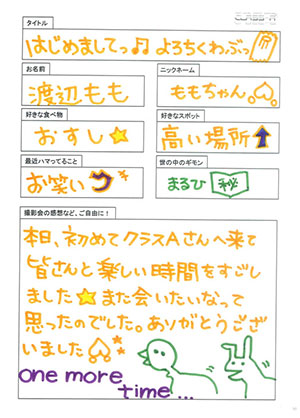 CLASS-A
タイトル
はじめましてっ♫ よろちくわぶっ
お名前
ニックネーム
渡辺もも
ももちゃん。
好きな食べ物
好きなスポット
おすし☆
高い場所↑
最近ハマってること
世の中のギモン
お笑い
まるひ 秘
撮影会の感想など、ご自由に!
本日、初めてクラスAさんへ来て
皆さんと楽しい時間をすごし
ました☆また会いたいなって
思ったのでした。ありがとうござ
いました
one more
time...